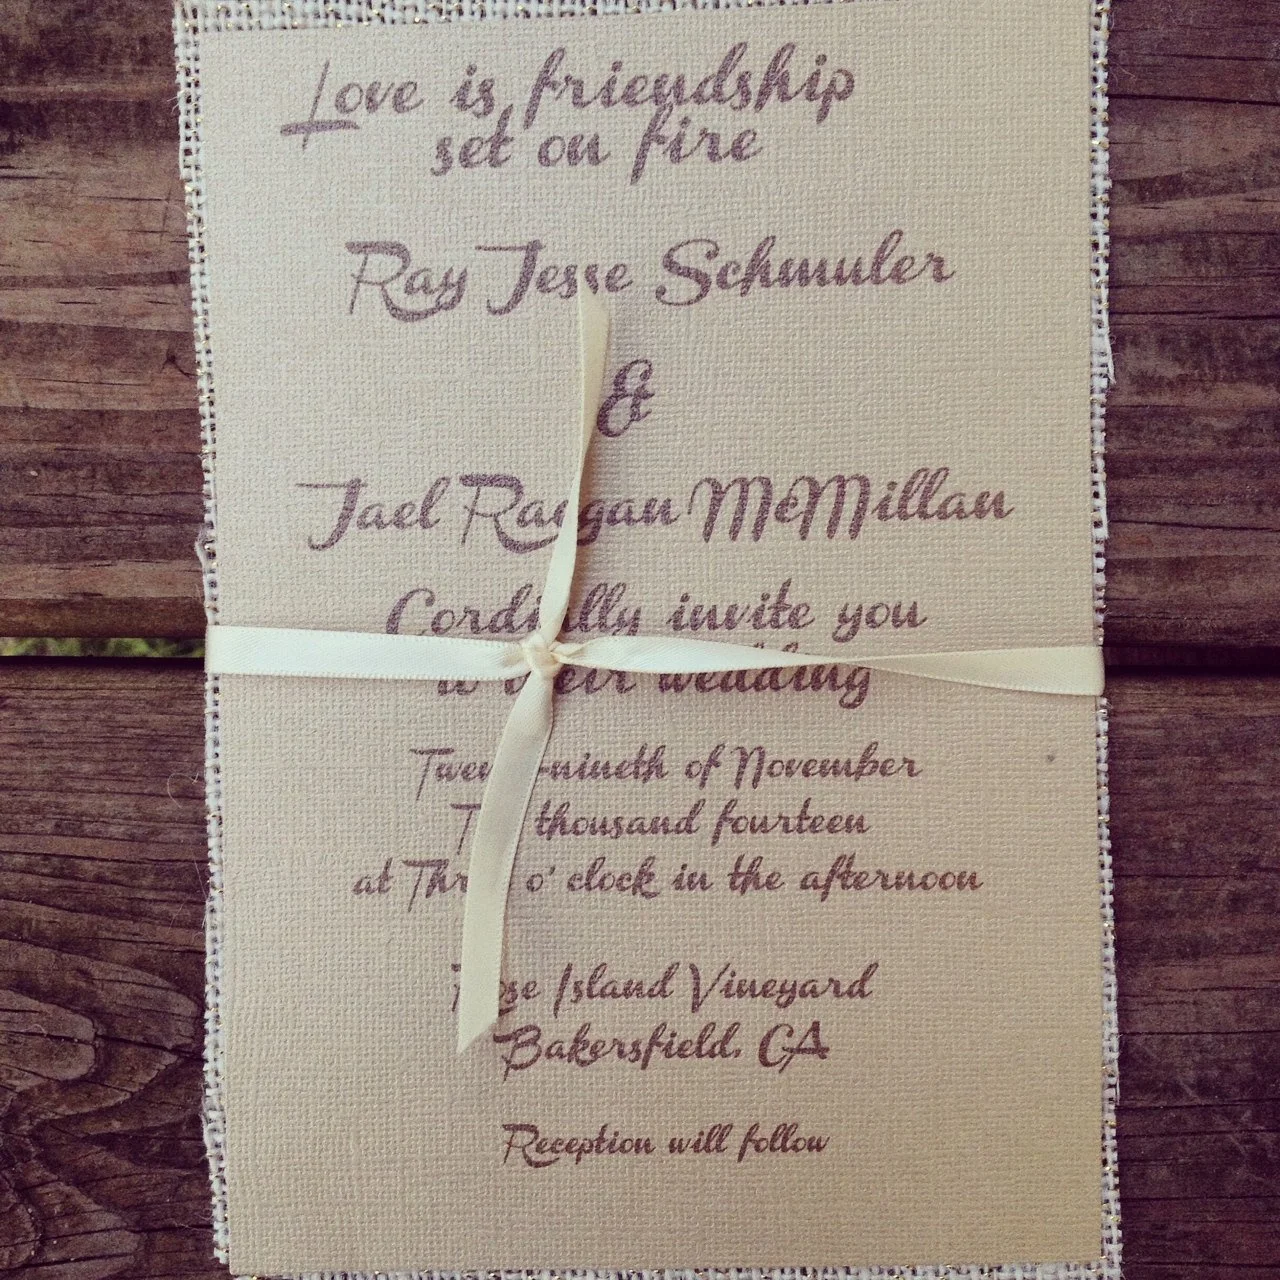 Love is friendship
set on fire
Ray Jesse Schmuler
&
Jael Raegan McMillan
Cordially invite you
to their wedding
Twenty-nineth of November
Two thousand fourteen
at Three o' clock in the afternoon
Rose Island Vineyard
Bakersfield, CA
Reception will follow